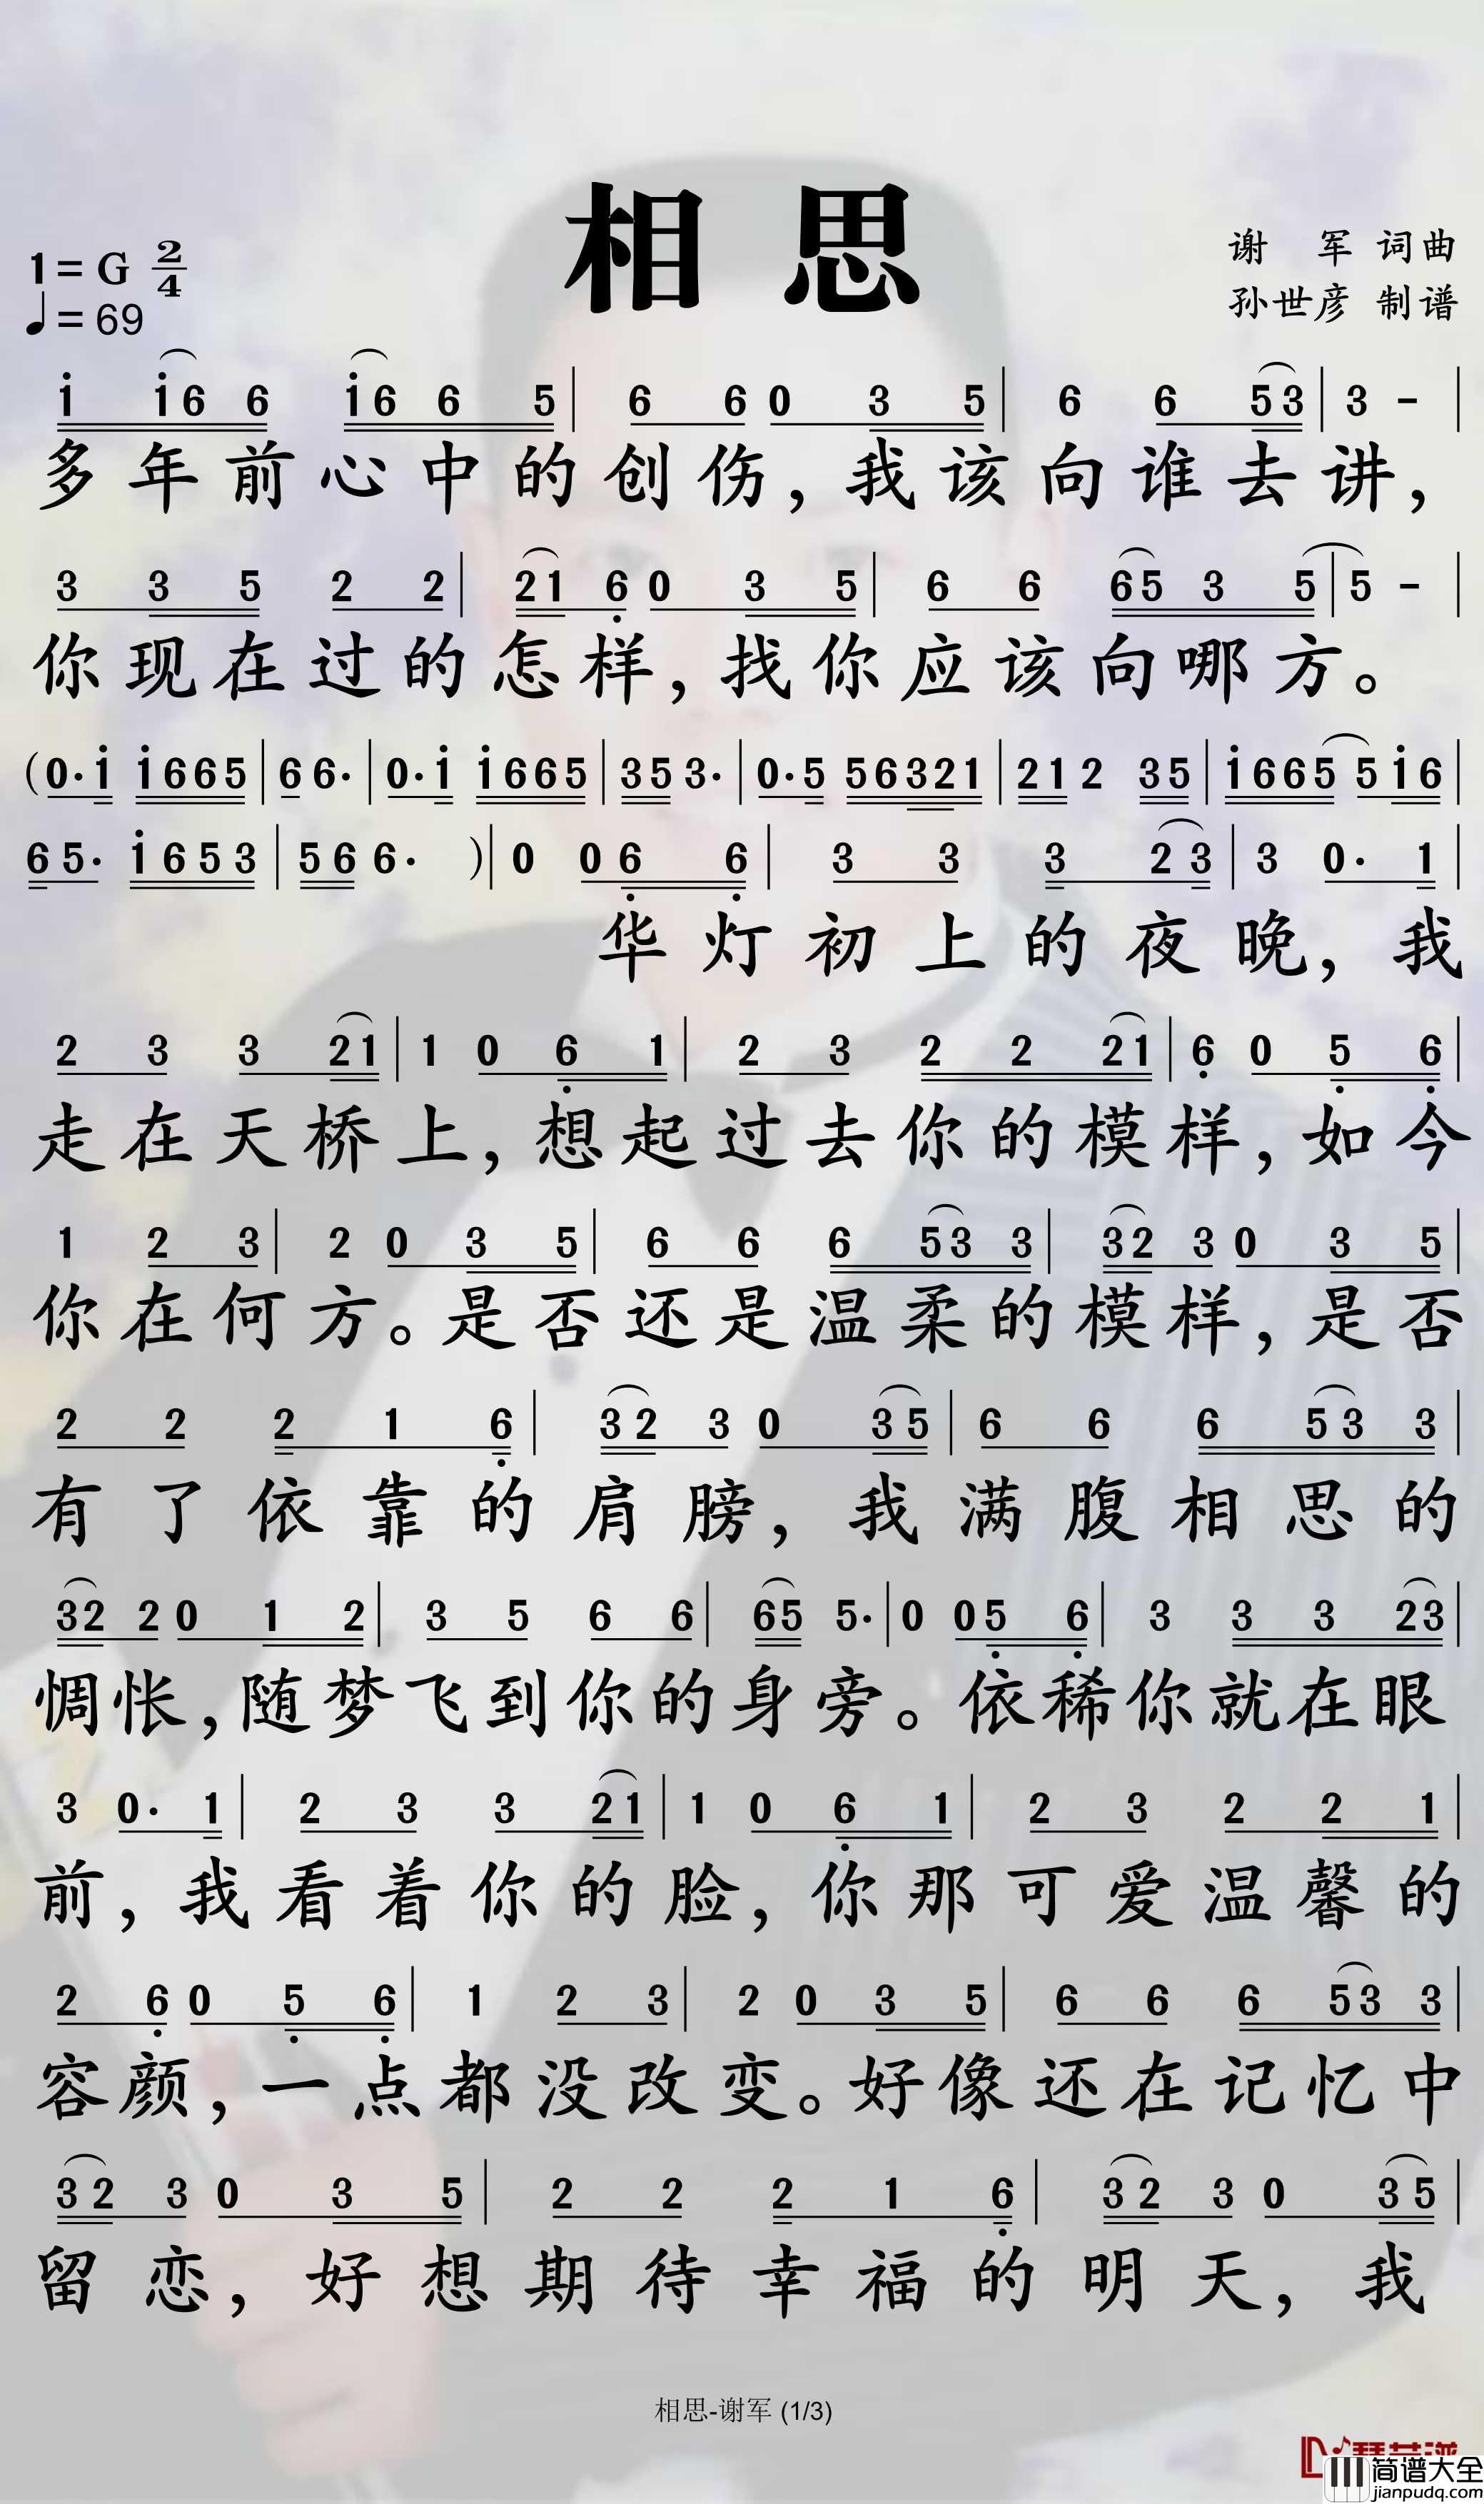 相思
1=G 2/4
♩=69
谢 军 词曲
孙世彦 制谱
i i6 6 i6 6 5 | 6 6 0 3 5 | 6 6 53 | 3 - |
多年前心中的创伤,我该向谁去讲,
3 3 5 2 2 | 21 6 0 3 5 | 6 6 65 3 5 | 5 - |
你现在过的怎样,找你应该向哪方。
(0·i i665 | 6 6· | 0·i i665 | 35 3· | 0·5 56321 | 21 2 35 | i665 5i6 |
6 5· i653 | 56 6· )| 0 0 6 6 | 3 3 3 2 3 | 3 0· 1 |
华灯初上的夜晚,我
2 3 3 21 | 1 0 6 1 | 2 3 2 2 21 | 6 0 5 6 |
走在天桥上,想起过去你的模样,如今
1 2 3 | 2 0 3 5 | 6 6 6 53 3 | 32 3 0 3 5 |
你在何方。是否还是温柔的模样,是否
2 2 2 1 6 | 32 3 0 35 | 6 6 6 53 3 |
有了依靠的肩膀,我满腹相思的
32 2 0 1 2 | 3 5 6 6 | 65 5· | 0 0 5 6 | 3 3 3 23 |
惆怅,随梦飞到你的身旁。依稀你就在眼
3 0· 1 | 2 3 3 21 | 1 0 6 1 | 2 3 2 2 1 |
前,我看着你的脸,你那可爱温馨的
2 6 0 5 6 | 1 2 3 | 2 0 3 5 | 6 6 6 53 3 |
容颜,一点都没改变。好像还在记忆中
32 3 0 3 5 | 2 2 2 1 6 | 32 3 0 35 |
留恋,好想期待幸福的明天,我
相思-谢军 (1/3)
简谱大全
jianpudq.com